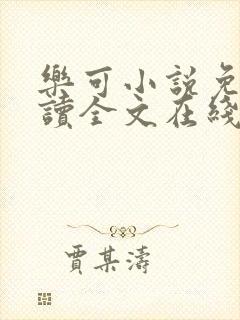 樂可小說免
讀全文在綫
賈某濤